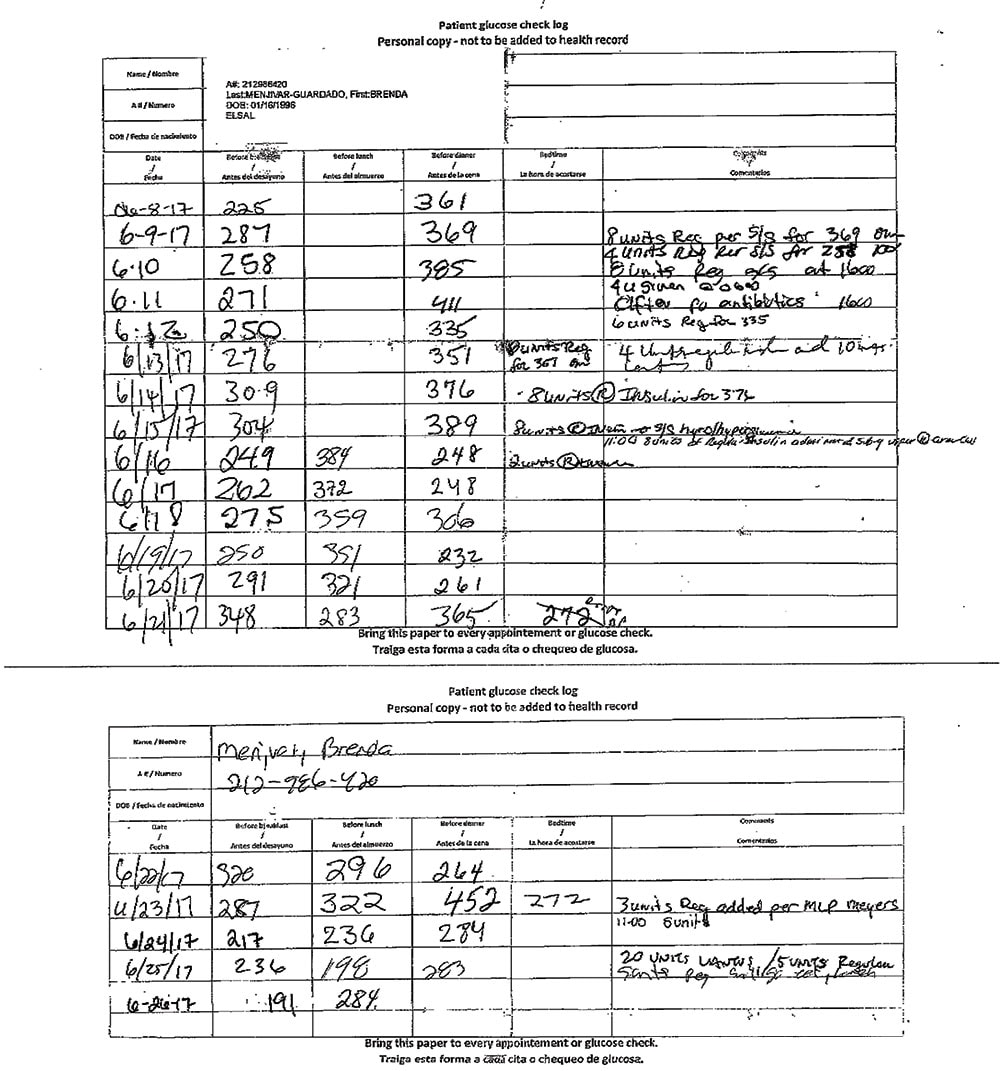 Patient glucose check log
Personal copy - not to be added to health record
Name / Nombre
A#: 212986420
Last:MENJIVAR-GUARDADO, First:BRENDA
A # / Numero
DOB: 01/16/1996
ELSAL
DOB / Fecha de nacimiento
Date / Fecha Before breakfast / Antes del desayuno Before lunch / Antes del almuerzo Before dinner / Antes de la cena Bedtime / La hora de acostarse Comments / Comentarios
06-8-17 225 361
6-9-17 287 369 8 units Reg per S/S for 369
4 units Reg per S/S for 258
6-10 258 385 8 units Reg at 1600
4u given @ 0600
6-11 271 411 after antibiotics 1600
6-12 250 335 6 units Reg for 335
6/13/17 276 351 units Reg 4
for 367
6/14/17 309 376 - 8 units (R) Insulin for 376
6/15/17 304 389 8 units (R) S/S
11:00 8 units of Regular Insulin
6/16 249 384 248 2 units (R)
6/17 262 372 248
6/18 275 359 306
6/19/17 250 351 232
6/20/17 291 321 261
6/21/17 348 283 365 272 error
Bring this paper to every appointement or glucose check.
Traiga esta forma a cada cita o chequeo de glucosa.
Patient glucose check log
Personal copy - not to be added to health record
Name / Nombre Menjvar, Brenda
A # / Numero 212-986-420
DOB / Fecha de nacimiento
Date / Fecha Before breakfast / Antes del desayuno Before lunch / Antes del almuerzo Before dinner / Antes de la cena Bedtime / La hora de acostarse Comments / Comentarios
6/22/17 320 296 264
6/23/17 287 322 452 272 3 units Reg added per MLP Meyers
11:00 5 units
6/24/17 217 236 284
6/25/17 236 198 283 20 UNITS LANTUS / 5 UNITS Regular
6-26-17 191 284
Bring this paper to every appointement or glucose check.
Traiga esta forma a cada cita o chequeo de glucosa.